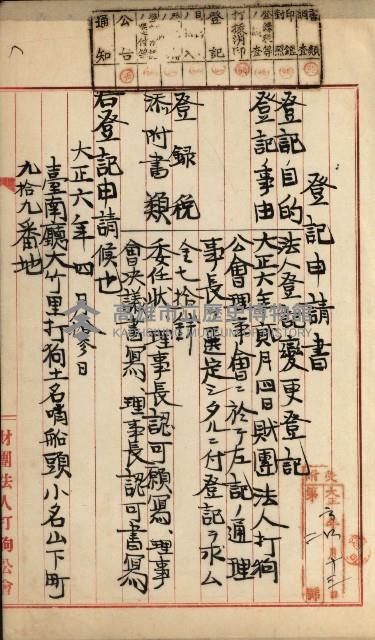 登記申請書
登記目的 法人登記變更登記
登記事由 大正六年貳月四日財團法人打狗
公會理事會ニ於テ左記ノ通理
事長ヲ選定シタルニ付登記ヲ求ム
登録税 金七拾錢
添附書類 委任狀、理事長認可願寫、理事
會決議書寫、理事長認可書寫
右登記申請候也
大正六年四月 日
臺南廳大竹里打狗土名哨船頭小名山下町
九拾九番地
財團法人打狗公會
調査
登記
公告
通知
高雄市立歷史博物館